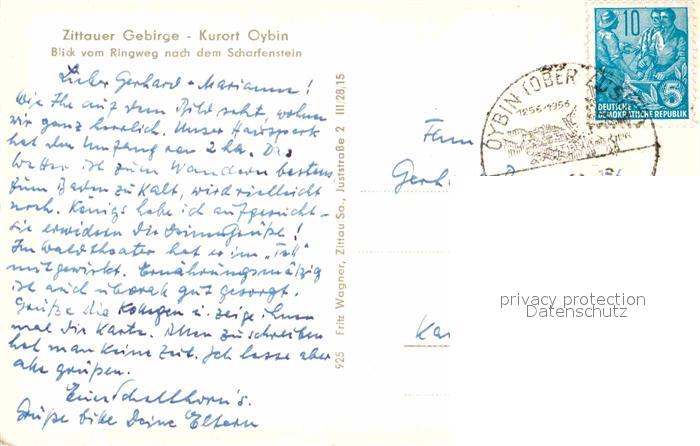 Zittauer Gebirge - Kurort Oybin
Blick vom Ringweg nach dem Scharfenstein
Lieber Gerhard + Marianne!
Wie Ihr auf dem Bild seht, wohnen
wir ganz herrlich. Unser Hauspark
hat den Umfang von 2 ha. Das
Wetter ist zum Wandern bestens
zum Baden zu kalt, wird vielleicht
noch. Königs habe ich aufgesucht -
sie erwidern die Grüße!
Im Waldtheater hat er im „Tell“
mitgewirkt. Ernährungsmäßig
ist auch überall gut gesorgt.
Grüße die Kollegen u. zeige ihnen
mal die Karte. Allen zu schreiben
hat man keine Zeit. Ich lasse aber
alle grüßen.
Grüße bitte Deine Eltern
925 Fritz Wagner, Zittau Sa., Juststraße 2 III/28/15
Fam
Gerh
Kar
OYBIN (OBER
1256-1956
10
5
DEUTSCHE
DEMOKRATISCHE REPUBLIK
privacy protection
Datenschutz